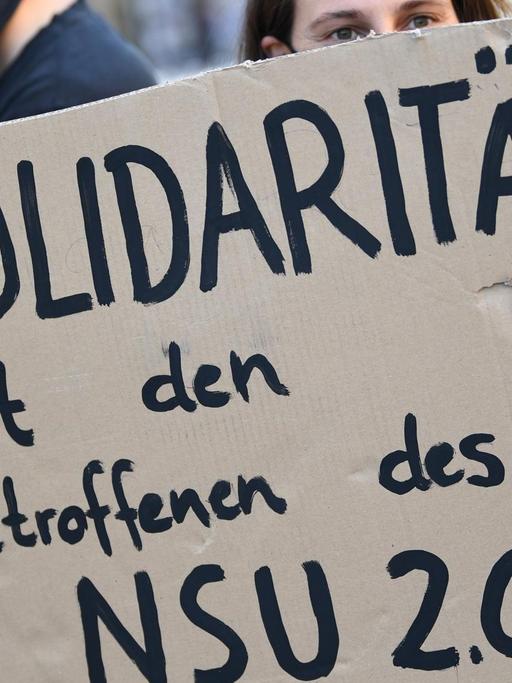 OLIDARITÄ
t den
troffenen des
NSU 2.0